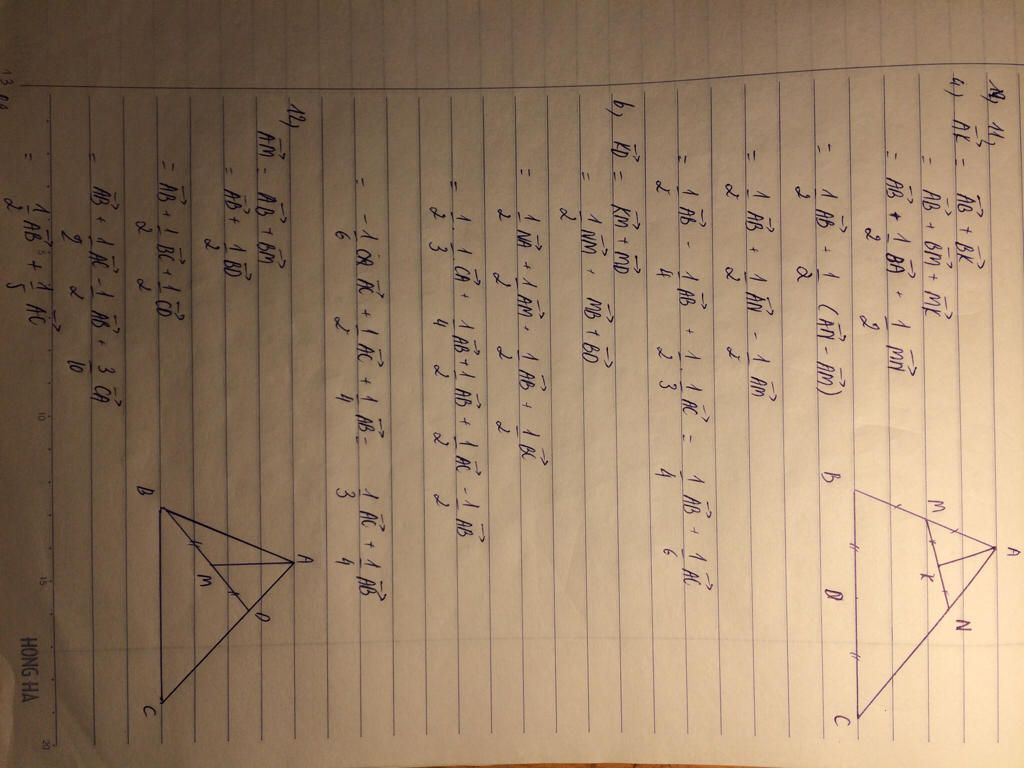 11,
a) AK = AB + BK
= AB + BM + MK
= AB + 1/2 BA + 1/2 MN
= 1/2 AB + 1/2 (AN - AM)
= 1/2 AB + 1/2 AN - 1/2 AM
= 1/2 AB - 1/4 AB + 1/2 . 1/3 AC = 1/4 AB + 1/6 AC
b, KD = KM + MD
= 1/2 NM + MB + BD
= 1/2 NA + 1/2 AM + 1/2 AB + 1/2 BC
= 1/2 . 1/3 CA + 1/4 AB + 1/2 AB + 1/2 AC - 1/2 AB
= -1/6 AC + 1/2 AC + 1/4 AB = 1/3 AC + 1/4 AB
12,
AM = AB + BM
= AB + 1/2 BD
= AB + 1/2 BC + 1/2 CD
= AB + 1/2 AC - 1/2 AB + 3/10 CA
= 1/2 AB + 1/5 AC
A
M
K
N
B
D
C
A
D
M
B
C
10
15
20
HONG HA